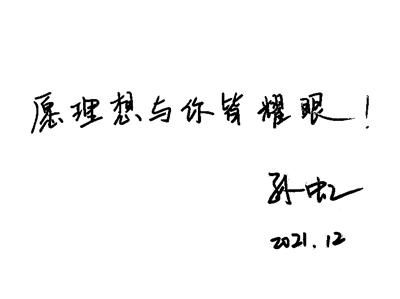 愿理想与你皆耀眼！
孙虹
2021.12